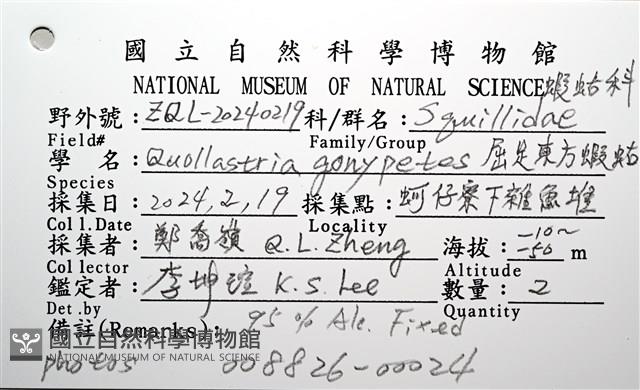 國立自然科學博物館
NATIONAL MUSEUM OF NATURAL SCIENCE 蝦蛄科
野外號：ZQL-20240219 科/群名：Squillidae
Field# Family/Group
學名：Quollastria gonypetes 屈足東方蝦蛄
Species
採集日：2024,2,19 採集點：蚵仔寮下雜魚堆
Coll.Date Locality
採集者：鄭喬嶺 Q.L.Zheng 海拔：-10~-50 m
Collector Altitude
鑑定者：李坤瑄 K.S.Lee 數量：2
Det.by Quantity
備註(Remarks)：95% Alc. Fixed
國立自然科學博物館
NATIONAL MUSEUM OF NATURAL SCIENCE
photos 008826-00024